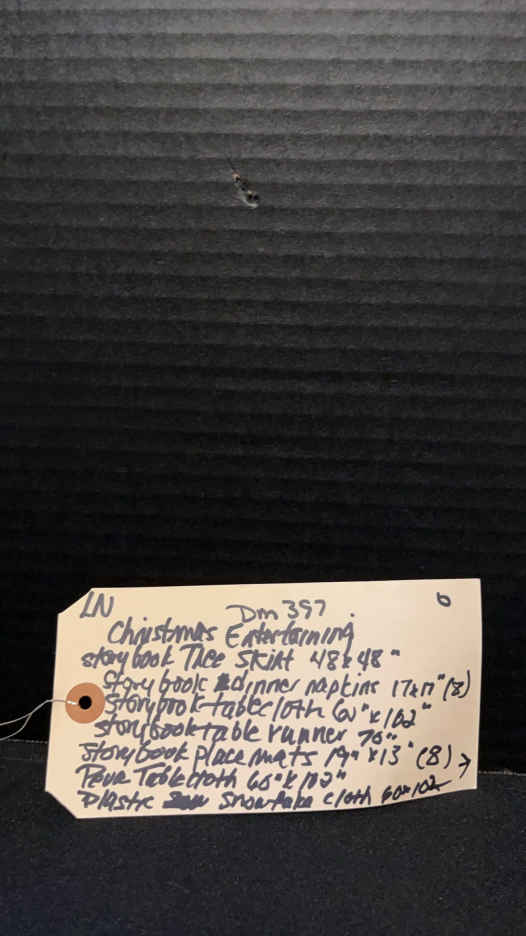 LN Dm 397 6
Christmas Entertaining
storybook Tree Skirt 48x48"
Storybook dinner napkins 17x17" (8)
storybook tablecloth 60" x 102"
storybook table runner 70"
Storybook place mats 19" x 13" (8) →
Tablecloth 60" x 102"
Plastic snowflake cloth 60x102